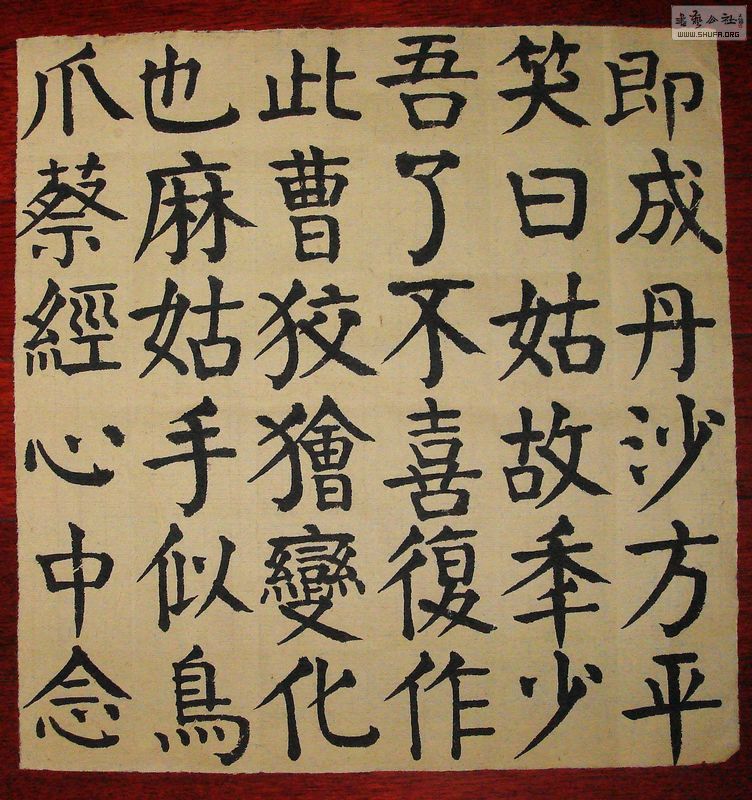 即成丹沙方平
笑曰姑故秊少
吾了不喜復作
此曹狡獪變化
也麻姑手似鳥
爪蔡經心中念
WWW.SHUFA.ORG